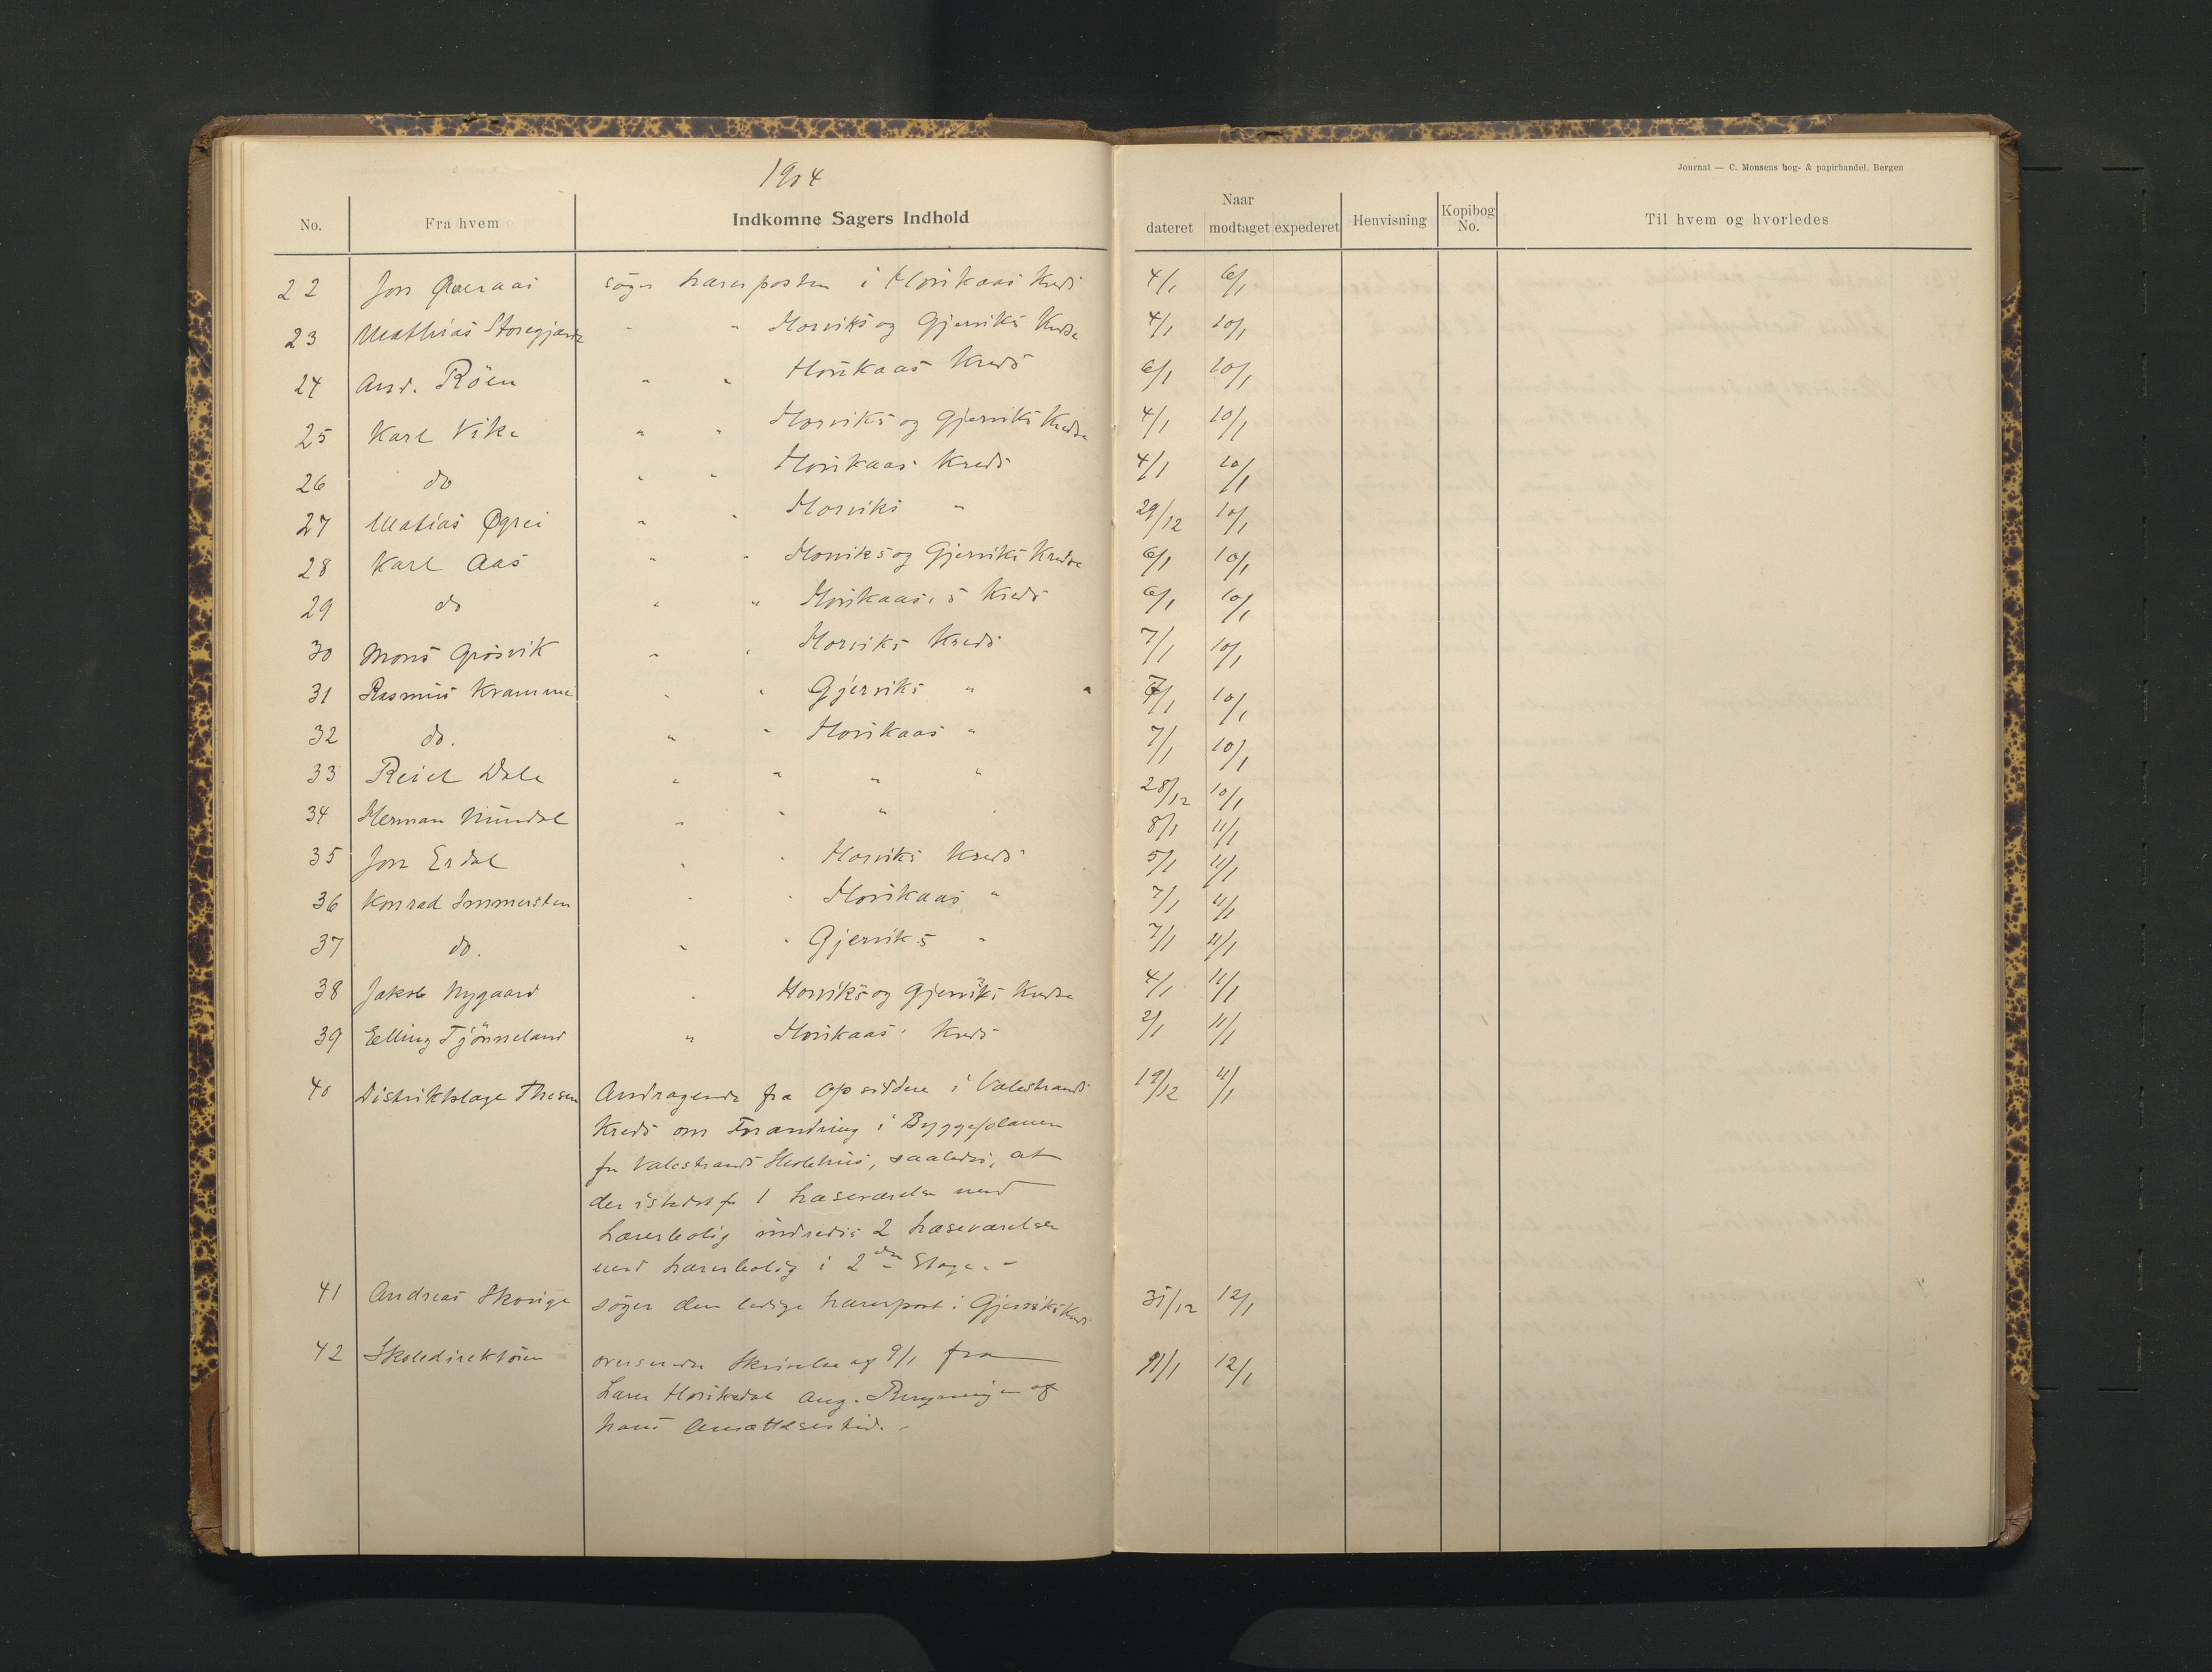 1904
Journal — C. Monsens bog- & papirhandel, Bergen
No. Fra hvem Indkomne Sagers Indhold Naar dateret modtaget expederet Henvisning Kopibog No. Til hvem og hvorledes
22 Jon Øveraas søger Lærerposten i Horsikaas Kreds 4/1 6/1
23 Mathias Storegjærde " " Horviks og Gjerviks Kredse 4/1 10/1
24 And. Röen " " Horsikaas Kreds 6/1 10/1
25 Karl Vike " " Horviks og Gjerviks Kredse 4/1 10/1
26 do " " Horsikaas Kreds 4/1 10/1
27 Matias Øgrei " " Horviks " 29/12 10/1
28 Karl Aas " " Horviks og Gjerviks Kredse 6/1 10/1
29 do " " Horsikaas's Kreds 6/1 10/1
30 Mons Grøsvik " " Horviks Kreds 7/1 10/1
31 Rasmus Kramme " " Gjerviks " " 7/1 10/1
32 do. " " Horsikaas " 7/1 10/1
33 Reiel Dale " " " " 28/12 10/1
34 Herman Mundal " " " " 8/1 11/1
35 Jon Erdal " " Horviks Kreds 5/1 11/1
36 Konrad Immersten " " Horsikaas " 7/1 11/1
37 do. " " Gjerviks " 7/1 11/1
38 Jakob Nygaard " Horviks og Gjerviks Kredse 4/1 11/1
39 Elling Tjönneland " Horsikaas' Kreds 2/1 11/1
40 Distriktslæge Thesen Andragende fra Opsiddere i Valestrands 19/12 11/1
Kreds om Forandring i Byggeplanen
for Valestrands Skolehus, saaledes, at
der istedetfor 1 Læseværelse med
Lærerbolig indredes 2 Læseværelser
med Lærerbolig i 2den Etage. -
41 Andreas Skorige søger den ledige Lærerpost i Gjerviks Kreds 31/12 12/1
42 Skoledirektören oversender Skrivelse af 9/1 fra 11/1 12/1
Lærer Horsikedal ang. Beregningen af
hans Ansættelsestid. -